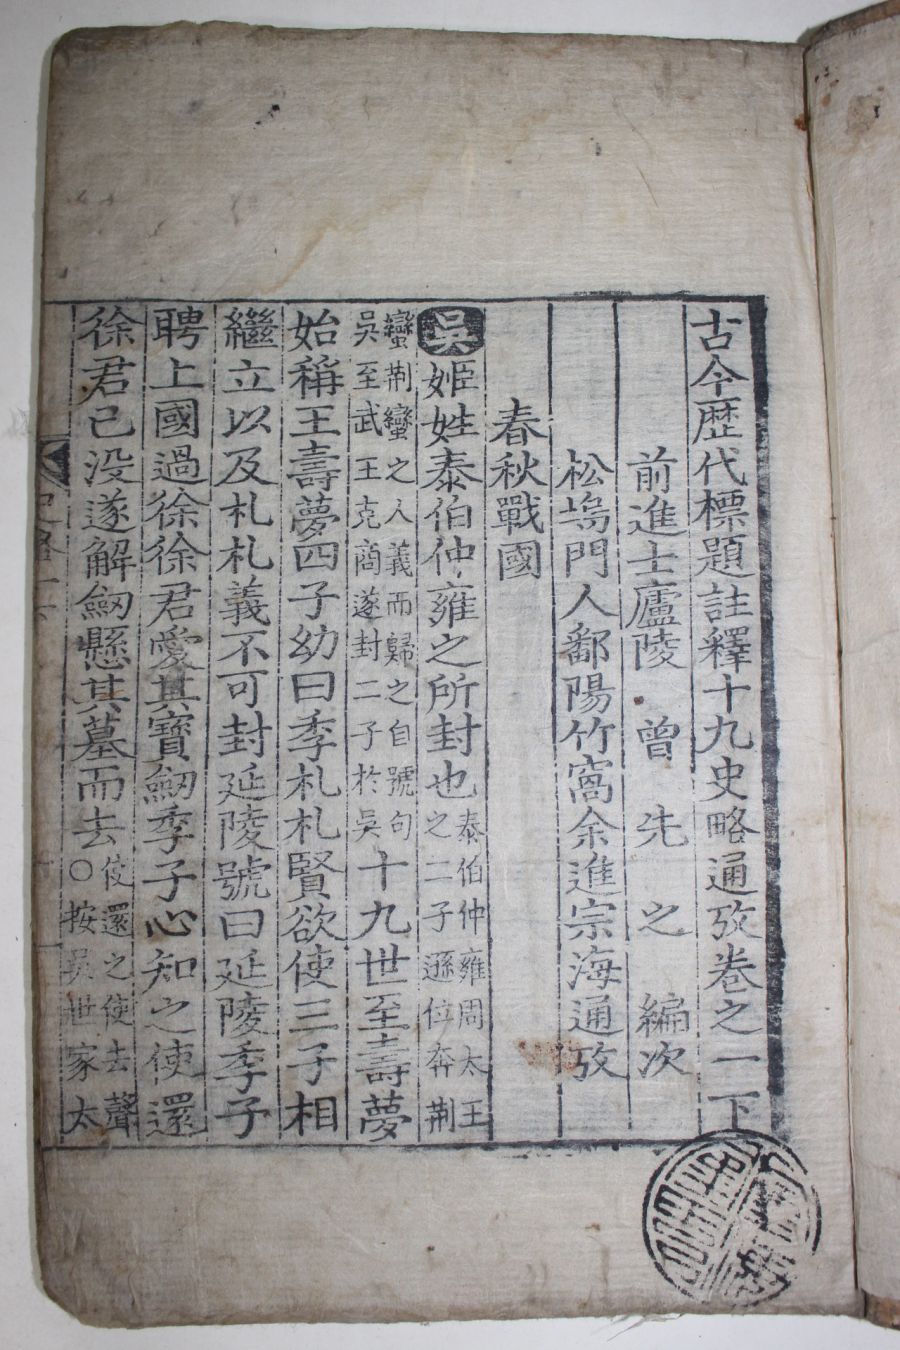 古今歴代標題註釋十九史略通攷卷之一下
前進士廬陵 曾 先 之 編次
松塢門人鄱陽竹窩余進宗海通攷
春秋戰國
吳姬姓泰伯仲雍之所封也泰伯仲雍周太王之二子遜位奔荆
蠻荆蠻之人義而歸之自號句吳至武王克商遂封二子於吳十九世至壽夢
始稱王壽夢四子幼曰季札札賢欲使三子相
繼立以及札札義不可封延陵號曰延陵季子
聘上國過徐徐君愛其寶劒季子心知之使還
徐君已没遂解劒懸其墓而去使還之使去聲○按吳世家太